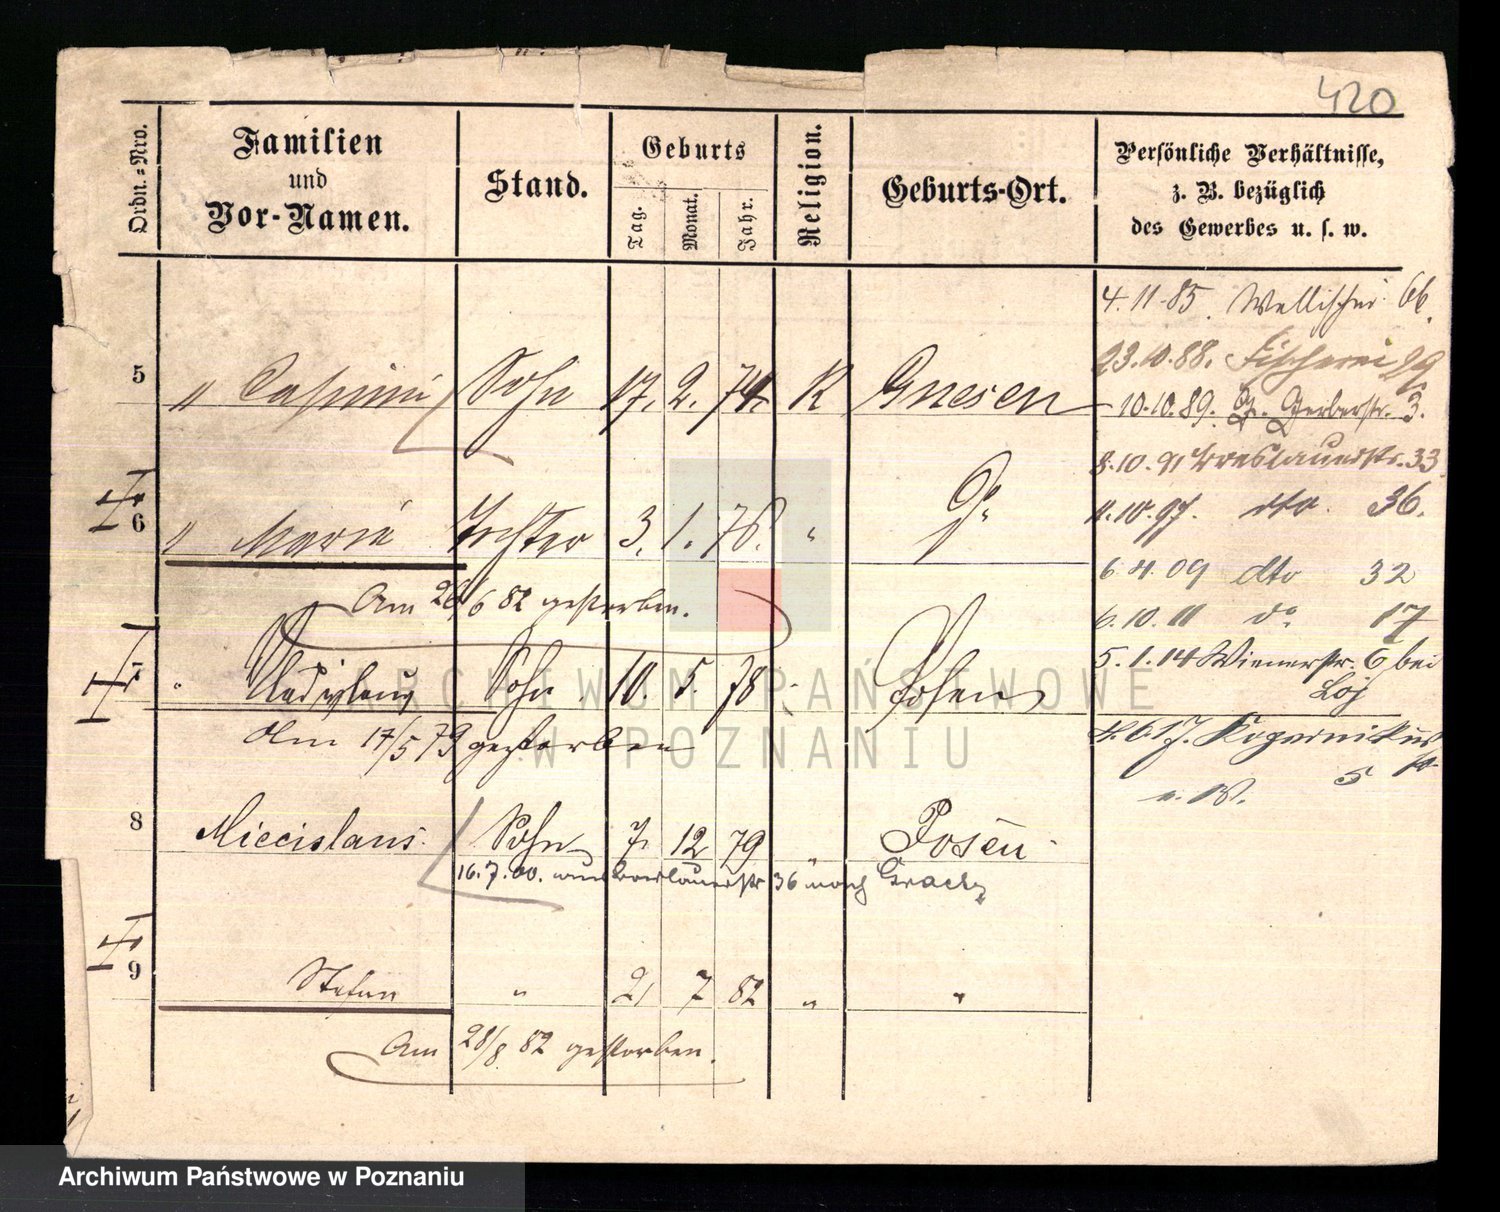 420
Ordn.-Nro.
Familien
und
Vor-Namen.
Stand.
Geburts
Tag.
Monat.
Jahr.
Religion.
Geburts-Ort.
Persönliche Verhältnisse,
z. B. bezüglich
des Gewerbes u. s. w.
4.11.85. Wallischei 66.
23.10.88. Fischerei
5 " Casimir Sohn 17. 2. 74. K Gnesen
10.10.89. G. Gerberstr. 3.
8.10.91 Breslauerstr. 33
6 " Maria Tochter 3. 1. 76. " Do
11.10.97. dto. 36.
6.4.09 dto 32
Am 26/6 82 gestorben.
6.10.11 do 17
7 " Vladislaus Sohn 10. 5. 78 " Posen
5.1.14 Wienerstr. 6 bei
Am 17/5 79 gestorben
4.6.17. Kopernikus
str 5
8 Miecislaus Sohn 7. 12 79 " Posen
16.7.00. Breslauerstr 36 nach
9 Stefan " 21 7 82 " "
Am 28/8. 82 gestorben.
ARCHIWUM PAŃSTWOWE
W POZNANIU
Archiwum Państwowe w Poznaniu